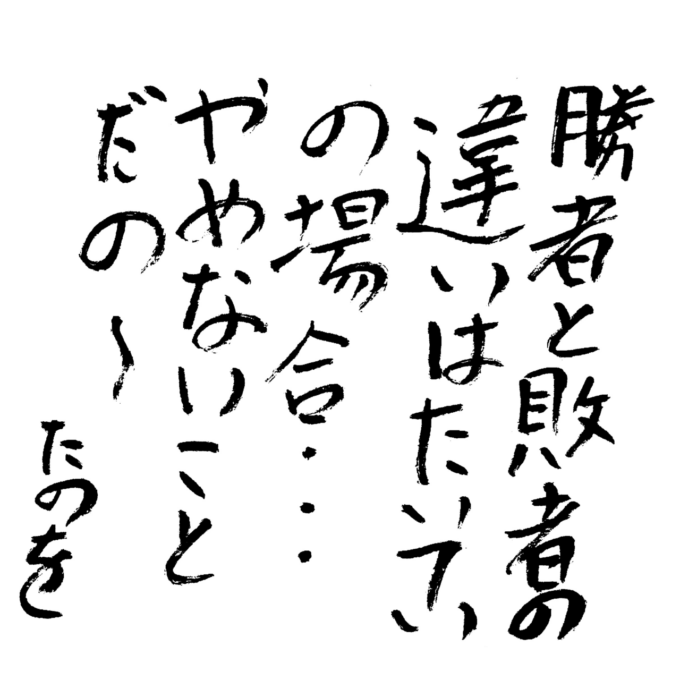 勝者と敗者の
違いはたいてい
の場合・・・
やめないこと
だの～
たのを